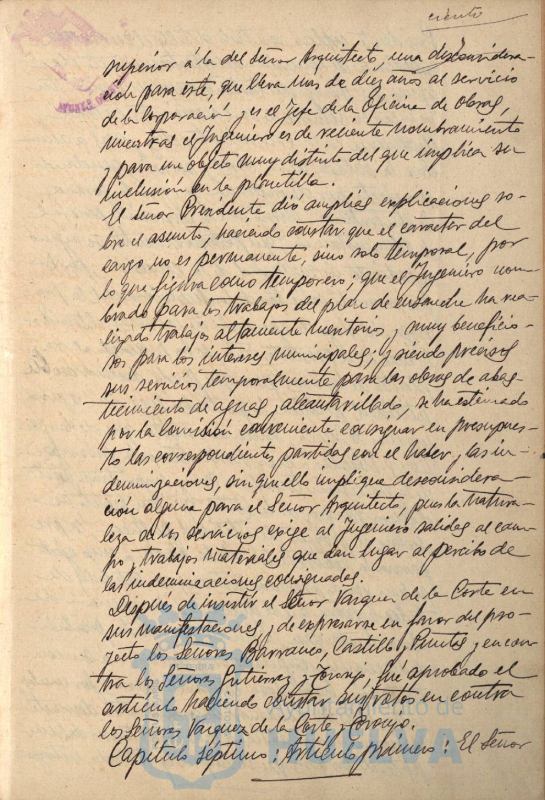 ciento
superior á la del Señor Arquitecto, una desconsidera-
ción para este, que lleva mas de diez años al servicio
de la Corporación y es el Jefe de la Oficina de Obras,
mientras el Ingeniero es de reciente nombramiento
y para un objeto muy distinto del que implica su
inclusión en la plantilla.
El Señor Presidente dió amplias explicaciones so-
bre el asunto, haciendo constar que el caracter del
cargo no es permanente, sino solo temporal, por
lo que figura como temporero; que el Ingeniero nom-
brado para los trabajos del plan de ensanche ha rea-
lizado trabajos altamente meritorios y muy beneficio-
sos para los intereses municipales; y siendo precisos
sus servicios temporalmente para las obras de abas-
tecimiento de aguas y alcantarillado, se ha estimado
por la Comisión conveniente consignar en presupues-
to las correspondientes partidas con el haber y las in-
demnizaciones, sin que ello implique desconsidera-
ción alguna para el Señor Arquitecto, pues la natura-
leza de los servicios exige al Ingeniero salidas al cam-
po y trabajos materiales que dan lugar al percibo de
las indemnizaciones consignadas.
Después de insistir el Señor Vazquez de la Corte en
sus manifestaciones y de expresarse en favor del pro-
yecto los Señores Barranco, Castillo y Puntas y en con-
tra los Señores Gutiérrez y Toronjo, fué aprobado el
artículo haciendo constar sus votos en contra
los Señores Vazquez de la Corte y Toronjo.
Capítulo séptimo: Artículo primero: El Señor
Ayuntamiento de
HUELVA